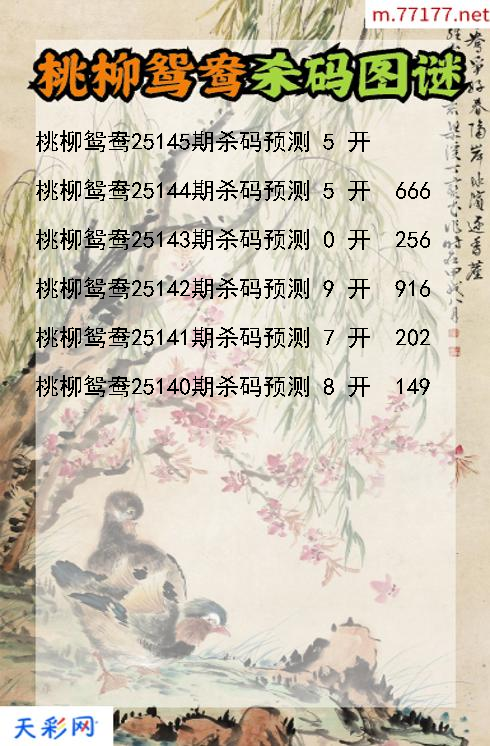 m.77177.net
桃柳鸳鸯杀码图谜
桃柳鸳鸯25145期杀码预测 5 开
桃柳鸳鸯25144期杀码预测 5 开 666
桃柳鸳鸯25143期杀码预测 0 开 256
桃柳鸳鸯25142期杀码预测 9 开 916
桃柳鸳鸯25141期杀码预测 7 开 202
桃柳鸳鸯25140期杀码预测 8 开 149
天彩网